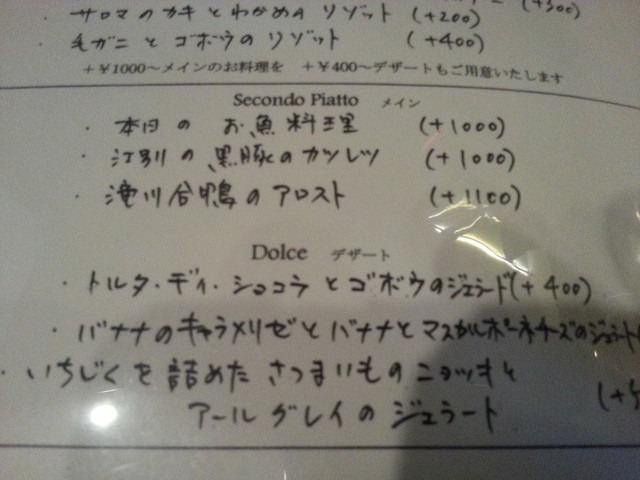 ・サロマのカキとわかめのリゾット (+200) (+300)
・毛ガニとゴボウのリゾット (+400)
+¥1000～メインのお料理を +¥400～デザートもご用意いたします
Secondo Piatto メイン
・本日の お魚料理 (+1000)
・江別の黒豚のカツレツ (+1000)
・滝川合鴨のアロスト (+1100)
Dolce デザート
・トルタ・ディ・ショコラとゴボウのジェラード(+400)
・バナナのキャラメリゼとバナナとマスカルポーネチーズのジェラート
・いちじくを詰めたさつまいものニョッキと
アールグレイのジェラート